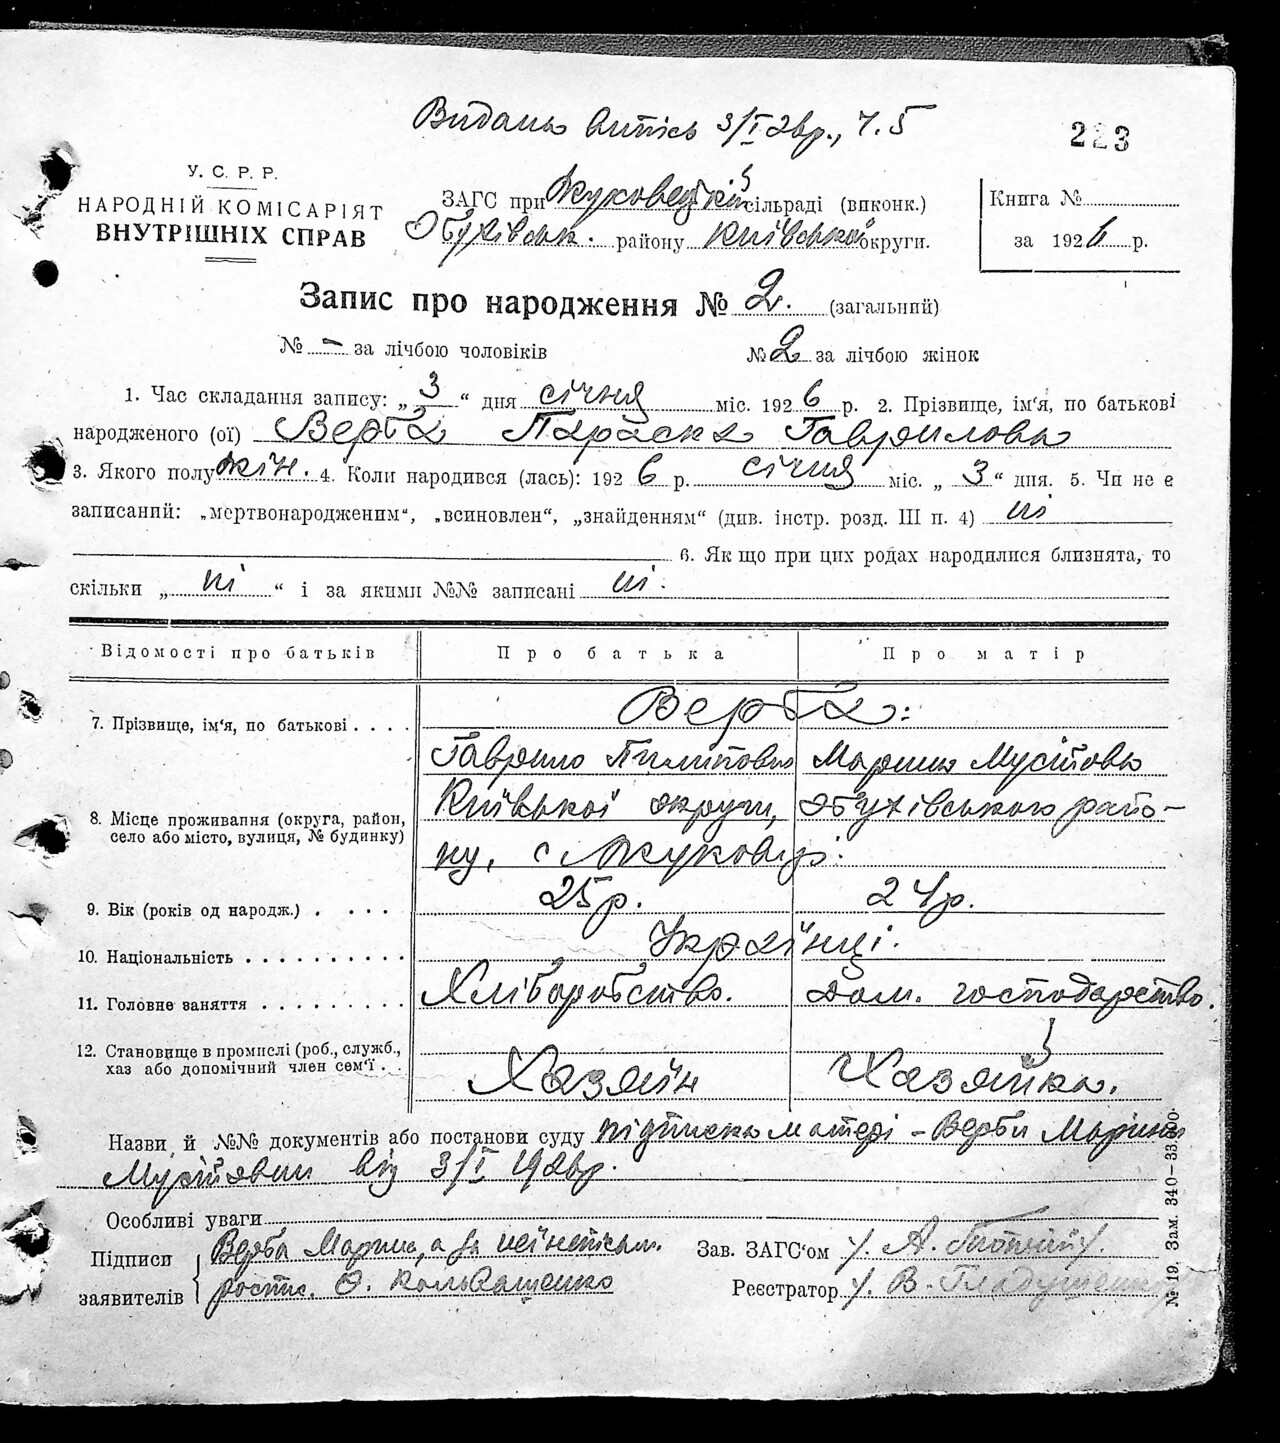 Видано випись 3/I 26р., ч. 5
223
У. С. Р. Р.
НАРОДНІЙ КОМІСАРІЯТ
ВНУТРІШНІХ СПРАВ
ЗАГС при Жуковецькій сільраді (виконк.)
Обухівськ. району Київської округи.
Книга №
за 1926 р.
Запис про народження № 2. (загальний)
№ - за лічбою чоловіків № 2 за лічбою жінок
1. Час складання запису: „ 3 “ дня січня міс. 1926 р. 2. Прізвище, ім'я, по батькові
народженого (ої) Верба Параска Гаврилова
3. Якого полу жін. 4. Коли народився (лась): 1926 р. січня міс. „ 3 “ дня. 5. Чи не є
записаний: „мертвонародженим“, „всиновлен“, „знайденням“ (див. інстр. розд. III п. 4) ні
6. Як що при цих родах народилися близнята, то
скільки „ ні “ і за якими №№ записані ні.
Відомості про батьків Про батька Про матір
7. Прізвище, ім'я, по батькові . . . . Верба:
Гаврило Пилипович Марина Мусіївна
8. Місце проживання (округа, район, село або місто, вулиця, № будинку) Київської округи, Обухівського райо-
ну, с Жуковці.
9. Вік (років од народж.) . . . . 25р. 24р.
10. Національність . . . . . . . . . . Українці.
11. Головне заняття . . . . . . . . . Хліборобство. Дом. господарство.
12. Становище в промислі (роб., служб., хаз або допомічний член сем'ї . . Хазяїн Хазяйка.
Назви й №№ документів або постанови суду підписка матері - Верби Марини
Мусіївни від 3/I 1926р.
Особливі уваги
Підписи заявителів Верба Марина, а за неї неписьм.
ростис. О.
Зав. ЗАГС'ом /. А.
Реєстратор /. В. Гладущенко
№ 19. Зам. 340—33.000